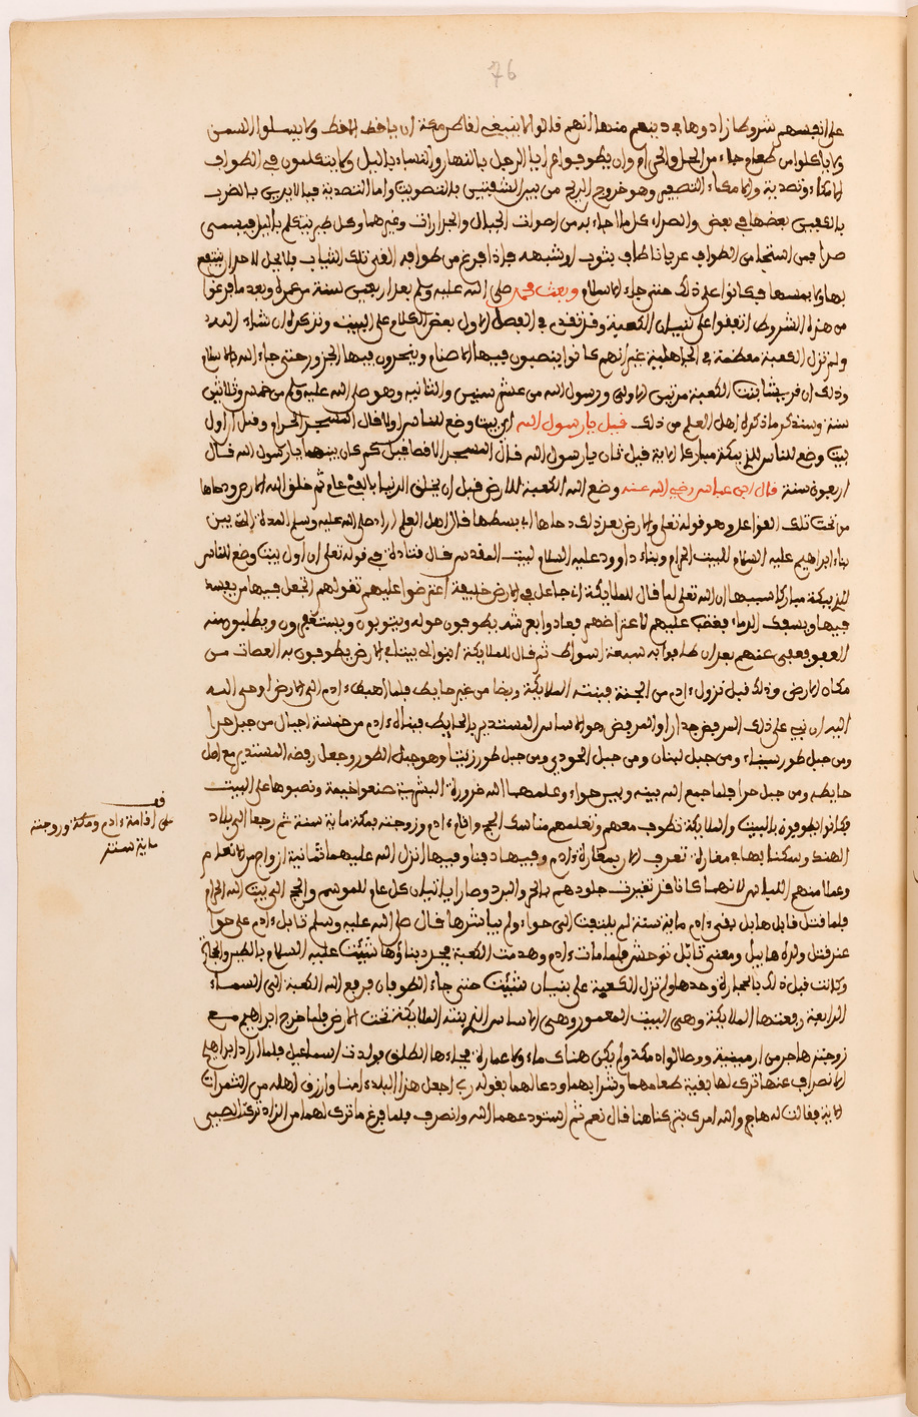 76
على انفسهم شروطا زادوها في دينهم منها انهم قالوا لا ينبغي لقاطن مكة ان ياقط الاقط ولا يسلوا السمن
ولا ياكلوا من طعام جاء من الحل والحرام وان يطوفوا عرايا الرجل بالنهار والنساء بالليل ولا يتكلمون في الطواف
الا مكاء وتصدية والمكاء التصفير وهو خروج الريح من بين الشفتين بالتصويت واما التصدية فبالايدي بالضرب
بالكفين بعضها في بعض والصراء كل ما جاء به من اصوات الجبال والجرارات وغيرهما وكل طير يتكلم بالليل فيسمى
صرا فمن استحيا من الطواف عريانا طاف بثوب او شبهه فاذا فرغ من طوافه القى تلك الثياب فلا يحل لاحد ان ينتفع
بها ولا يمسها فكانوا على ذلك حتى جاء الاسلام وبعث محمد صلى الله عليه وسلم بعد اربعين سنة من عمره وبعد ما فرغوا
من هذه الشروط اتفقوا على بنيان الكعبة وقد تقدم في الفصل الاول بعض الكلام على البيت ونذكره ان شاء الله
ولم تزل الكعبة معظمة في الجاهلية غير انهم كانوا ينصبون فيها الاصنام وينحرون فيها الجزور حتى جاء الله بالاسلام
وذلك ان قريشا بنت الكعبة مرتين الاولى ورسول الله من عشر سنين والثانية وهو صلى الله عليه وسلم من خمسة وثلاثين
سنة وسنذكر ما ذكره اهل العلم من ذلك قيل يا رسول الله اي بيت وضع للناس اولا قال المسجد الحرام وقيل اول
بيت وضع للناس للذي ببكة مباركا الاية قيل ثم اي يا رسول الله قال المسجد الاقصا قيل كم كان بينهما يا رسول الله قال
اربعون سنة قال ابن عباس رضي الله عنه وضع الله الكعبة للارض قبل ان يخلق الدنيا بالفي عام ثم خلق الله الارض ودحاها
من تحت تلك القواعد وهو قوله تعلى والارض بعد ذلك دحاها اي بسطها قال اهل العلم اراد صلى الله عليه وسلم المدة التي بين
بناء ابراهيم عليه السلام للبيت الحرام وبناء داوود عليه السلام لبيت المقدس قال قتادة في قوله تعلى ان اول بيت وضع للناس
للذي ببكة مباركا سببها ان الله تعلى لما قال للملايكة اني جاعل في الارض خليفة اعترضوا عليهم بقولهم اتجعل فيها من يفسد
فيها ويسفك الدماء فغضب عليهم لاعتراضهم فعادوا بعرشه يطوفون حوله ويتوبون ويستغفرون ويطلبون منه
العفو فعفى عنهم بعد ان طافوا به سبعة اسواط ثم قال للملايكة ابنوا لي بيتا في الارض يطوفون به العصات من
مكان الارض وذلك قبل نزول ءادم من الجنة فبنته الملايكة وبضا من غير حايط فلما اهبط ءادم الى الارض اوحى الله
اليه ان يبني على ذلك الربض جدارا والربض هو الاساس المستدير بالحايط فبناه ءادم من خمسة اجبال من جبل حرا
ومن جبل طور سيناء ومن جبل لبنان ومن جبل الجودي ومن جبل طور زيتا وهو جبل الطور وجعل ربضه المستدير مع اصل
حايطه ومن جبل حرا فلما جمع الله بينه وبين حواء وعلمهما الله ضرورة البشرية صنعوا خيمة ونصبوها على البيت
فكانوا يطوفون بالبيت والملايكة تطوف معهم وتعلمهم مناسك الحج واقام ءادم وزوجته بمكة ماية سنة ثم رجعا الى بلاد
الهند وسكنا بها في مغارة تعرف الان بمغارة ءادم وفيها دفنا وفيها انزل الله عليهما ثمانية ازواج من الانعام
وعملا منهم اللباس لانهما كانا قد تغيرت جلودهم بالحر والبرد وصارا ياتيان كل عام للموسم والحج الى بيت الله الحرام
فلما قتل قابل هابل بقي ءادم ماية سنة لم يلتفت الى حواء ولم يباشرها قال صلى الله عليه وسلم قابل ءادم على حوا
عند قتل ولده هابيل ومعنى قابل توحش فلما مات ءادم وهدمت الكعبة فجدد بناؤها شيت عليه السلام بالطين والحجارة
وكانت قبل ذلك بالحجارة وحدها ولم تزل الكعبة على بنيان شيت حتى جاء الطوفان فرفع الله الكعبة الى السماء
الرابعة رفعتها الملايكة وهي البيت المعمور وهي الاساس الذي بنته الملايكة تحت الارض فلما خرج ابراهيم مع
زوجته هاجر من ارمينية ووصلا لواد مكة ولم يكن هناك ماء ولا عمارة فجاءها الطلق فولدت اسماعيل فلما اراد ابراهيم
الانصراف عنها ترك لها بقية طعامهما وشرابهما ودعا لهما بقوله رب اجعل هذا البلد ءامنا وارزق اهله من الثمرات
الاية فقالت له هاجر والله امرك بتركنا هنا قال نعم ثم استودعهما الله وانصرف فلما فرغ ما ترك لهما من الزاد تركت الصبي
قف
على اقامة ءادم ومكة وزوجته
ماية سنة